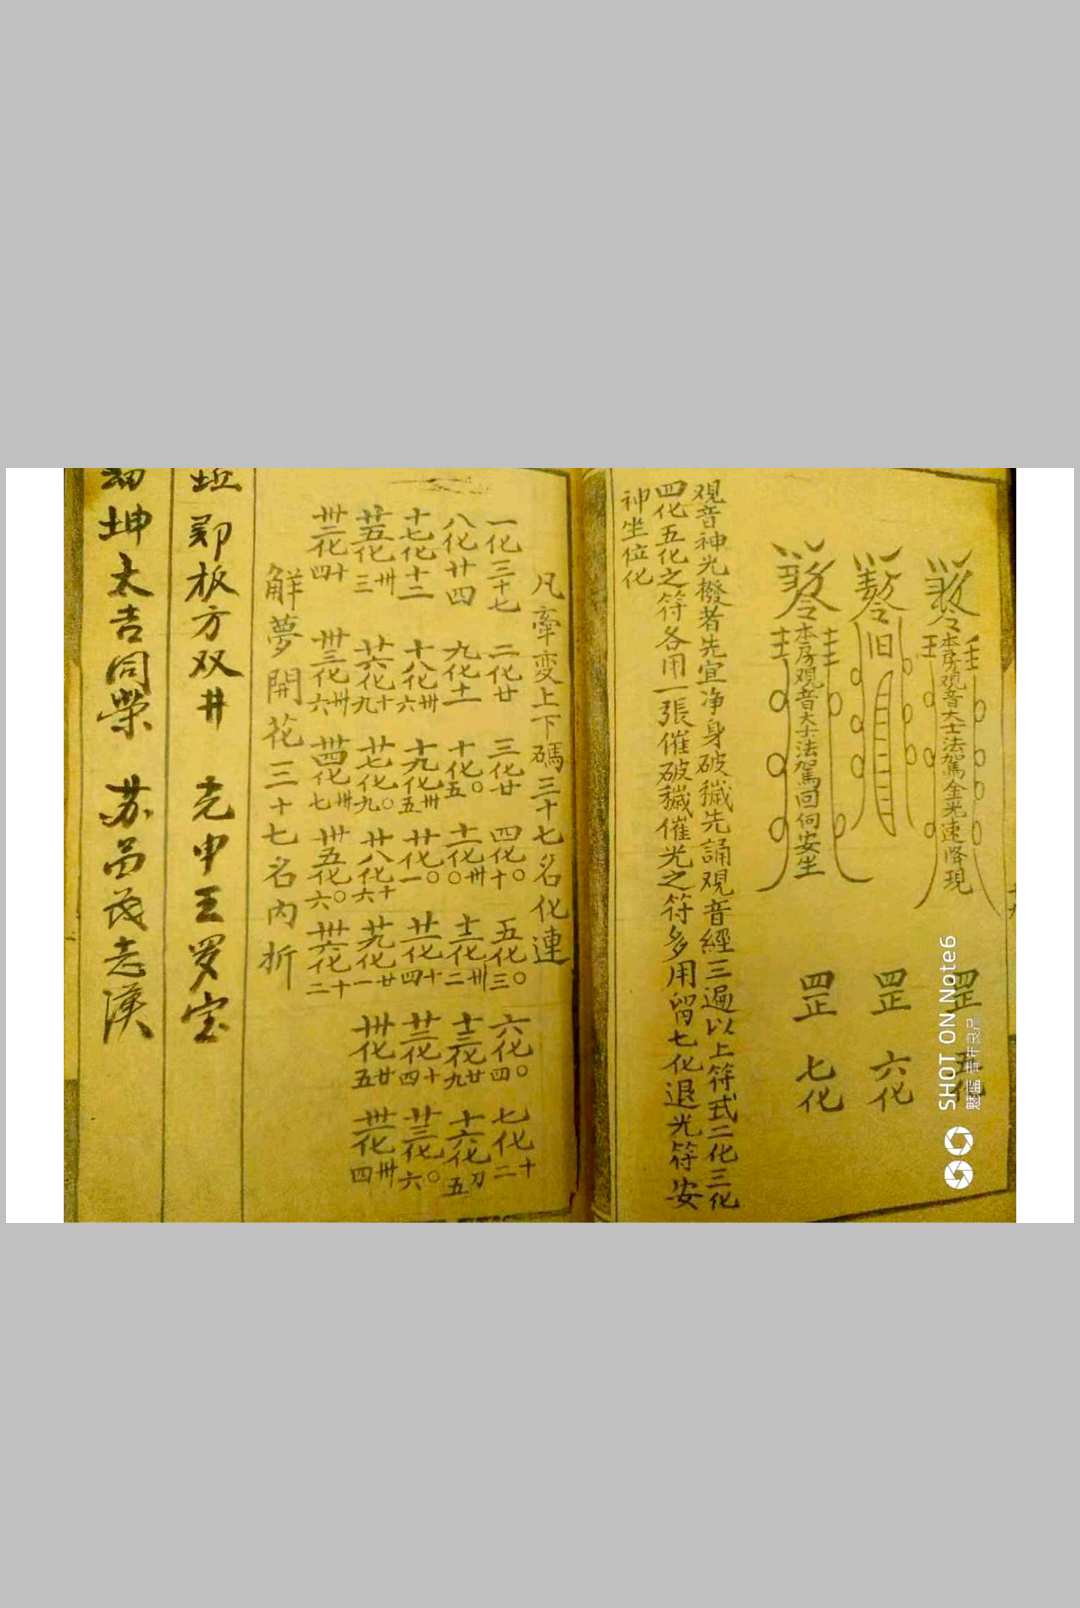 本房观音大士法駕金光速降現
罡 五化
旧
罡 六化
令本房观音大士法駕回向安坐
罡 七化
观音神光撥者先宜净身破穢先誦观音經三遍以上符式二化三化
四化五化之符各用一張催破穢催光之符多用留七化退光符安
神坐位化
凡牽变上下碼三十七名化連
一化三十七 二化廿 三化廿 四化十〇 五化三〇 六化四〇 七化二十
八化廿四 九化十一 十化五〇 十一化〇卅 十二化二卅 十三化九廿 十六化五
十七化十二 十八化六卅 十九化五卅 廿化一〇 廿一化四十 廿二化四十 廿三化六〇
廿五化三卅 廿六化九十 廿七化九〇 廿八化六十 廿九化一廿 卅化五廿 卅一化四卅
卅二化四十 卅三化六卅 卅四化七卅 卅五化六〇 卅六化二十
解夢開花三十七名内折
郑板方双井 光申王罗宝
坤太吉同榮 苏吕茂志漢
SHOT ON Note6